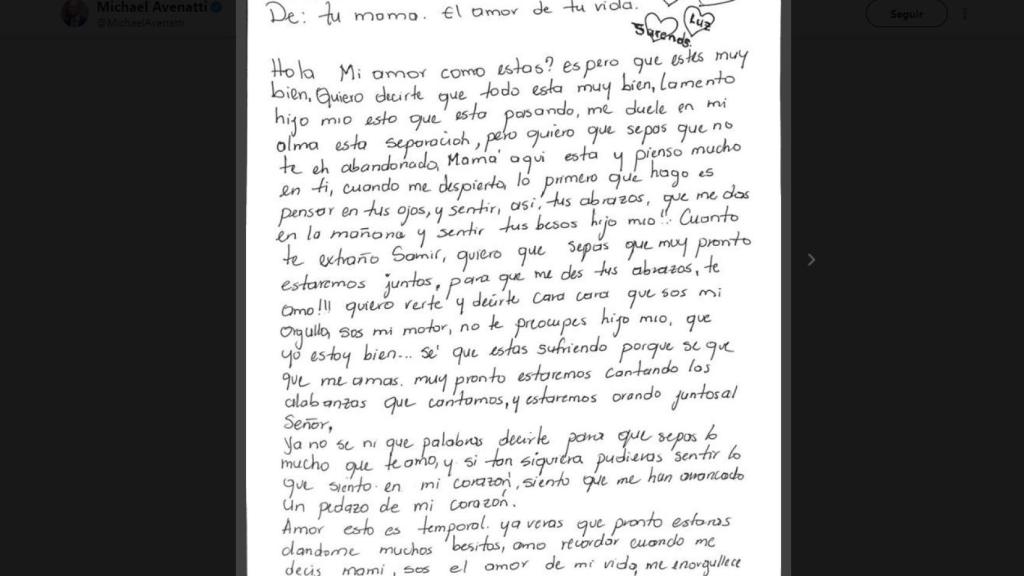 Michael Avenatti
@MichaelAvenatti
Seguir
De: tu mama. El amor de tu vida.
Luz
Hola Mi amor como estas? espero que estes muy
bien, Quiero decirte que todo esta muy bien, Lamento
hijo mio esto que esta pasando, me duele en mi
alma esta separacion, pero quiero que sepas que no
te eh abandonado, Mamá aqui esta y pienso mucho
en ti, cuando me despierto, lo primero que hago es
pensar en tus ojos, y sentir, asi, tus abrazos, que me das
en la mañana y sentir tus besos hijo mio!! Cuanto
te extraño Samir, quiero que sepas que muy pronto
estaremos juntos, para que me des tus abrazos, te
amo!!! quiero verte y decirte cara cara que sos mi
Orgullo, sos mi motor, no te preocupes hijo mio, que
yo estoy bien... sé que estas sufriendo porque se que
que me amas. muy pronto estaremos cantando las
alabanzas que cantamos, y estaremos orando juntos al
Señor,
Ya no se ni que palabras decirte para que sepas lo
mucho que te amo, y si tan siquiera pudieras sentir lo
que siento en mi corazón, siento que me han arrancado
un pedazo de mi corazón.
Amor esto es temporal. ya veras que pronto estaras
dandome muchos besitos, amo recordar cuando me
decis mami, sos el amor de mi vida, me enorgullece